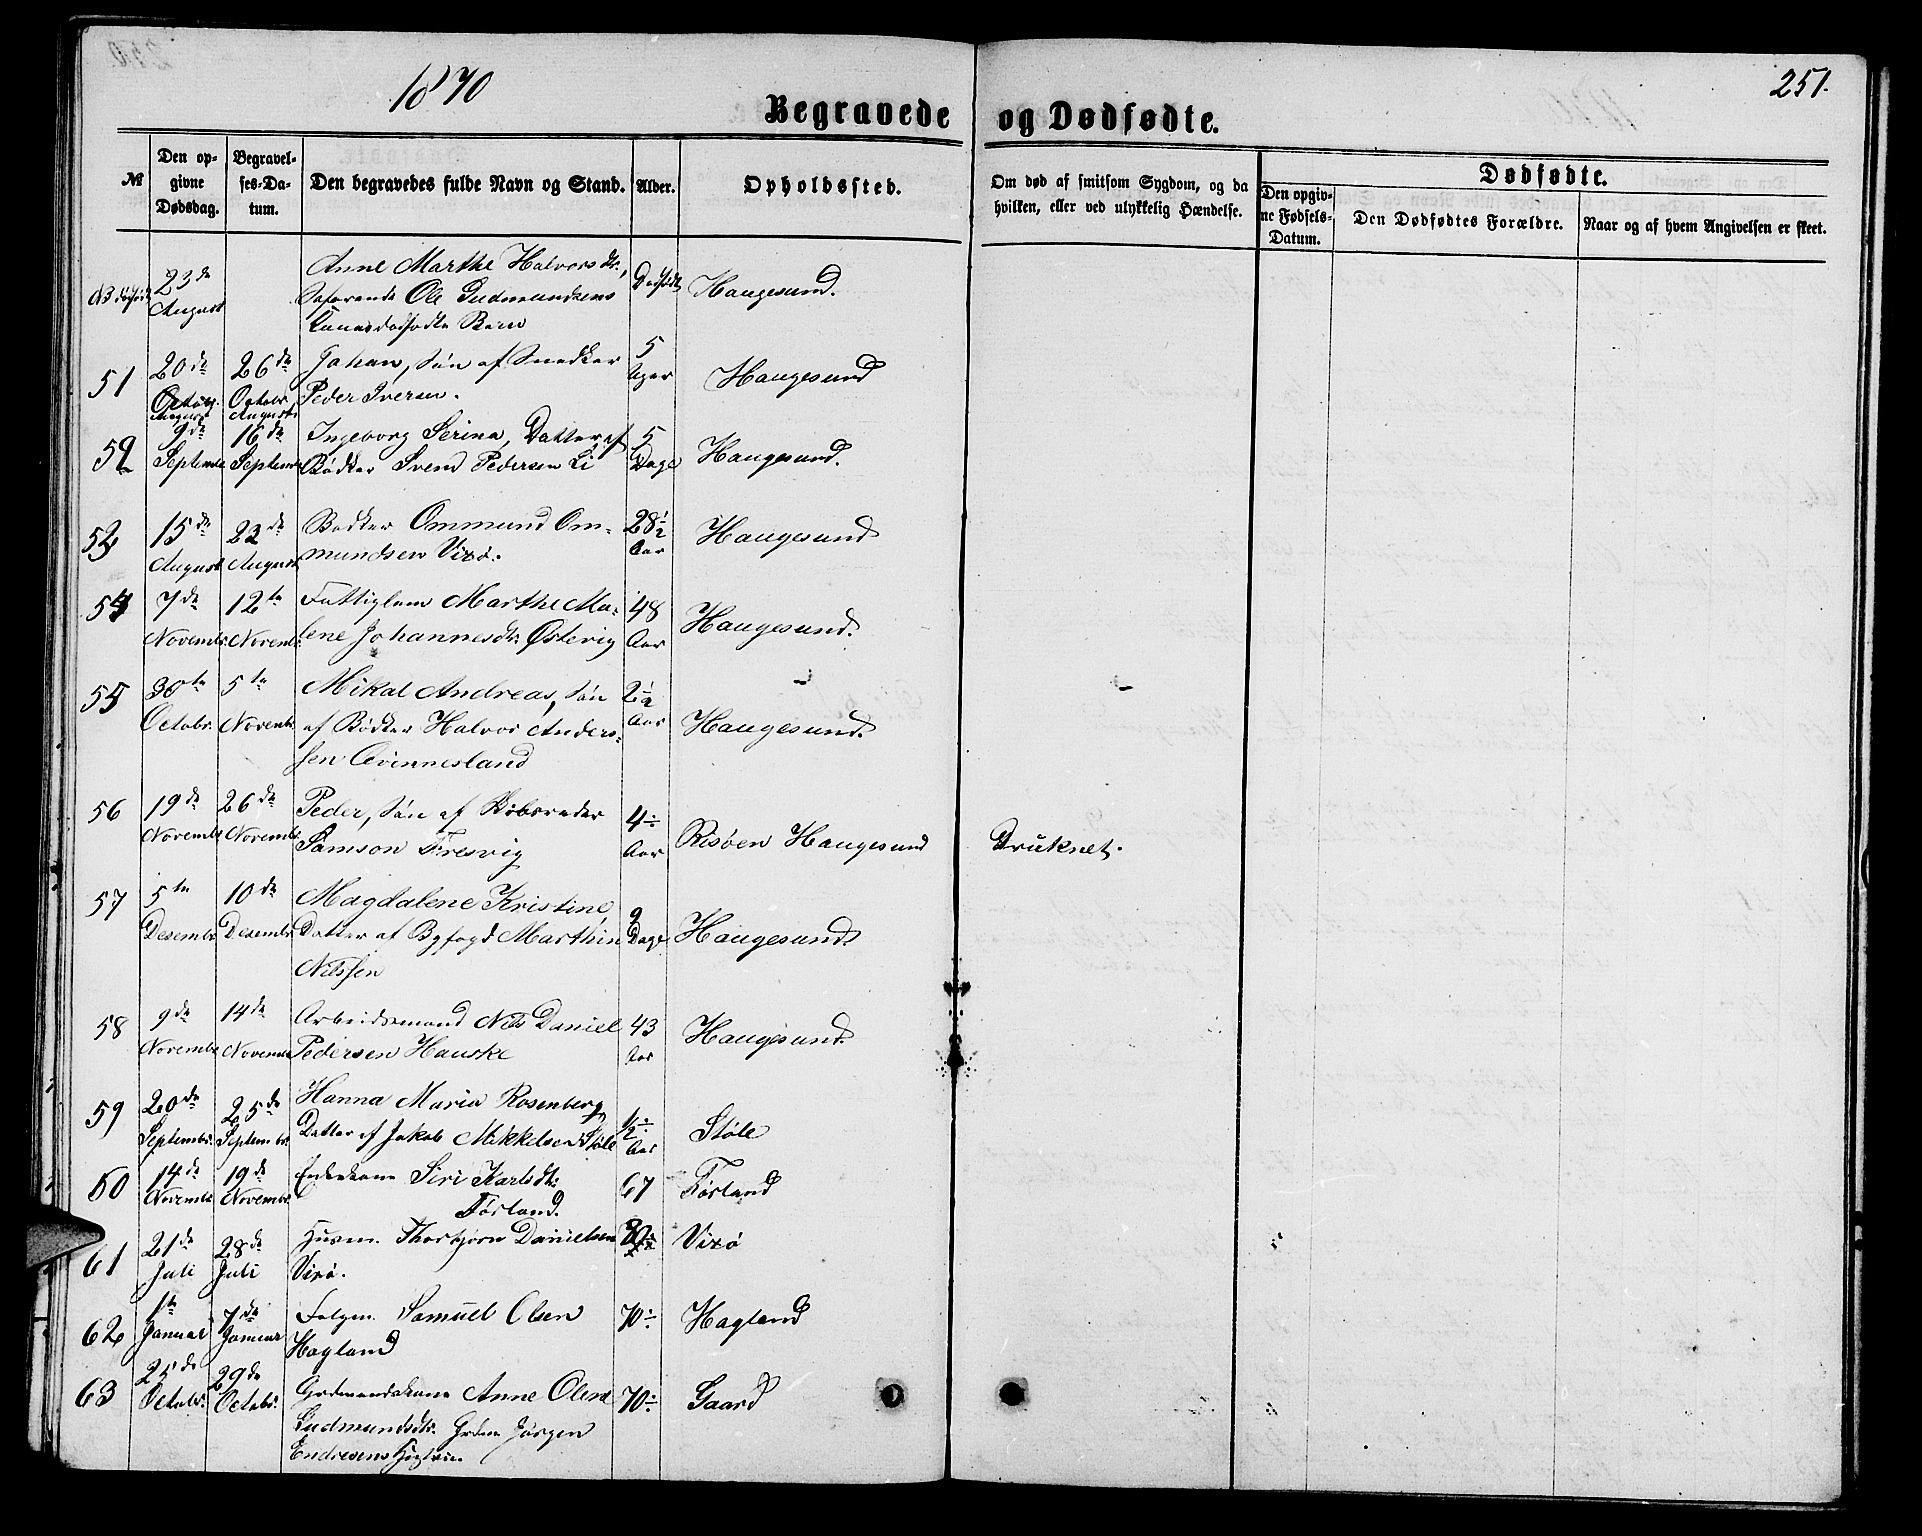 1870
251.
Begravede og Dødfødte.
№
Den opgivne Dødsdag.
Begravelses-Datum.
Den begravedes fulde Navn og Stand.
Alder.
Opholdssted.
Om død af smitsom Sygdom, og da hvilken, eller ved ulykkelig Hændelse.
Dødfødte.
Den opgivne Fødsels-Datum.
Den Dødfødtes Forældre.
Naar og af hvem Angivelsen er skeet.
23de August
Anne Marthe Halvorsdtr,
Søfarende Ole Gudmundsens
Kones dødfødte Barn
Dødfødt
Haugesund.
51
20de Octobr. August
26de Octobr. August
Johan, Søn af Snedker
Peder Iversen.
5 Uger
Haugesund
52
9de Septembr
16de Septembr
Ingeborg Serina, Datter af
Bødker Svend Pedersen Li
5 Dage
Haugesund.
53
15de August
23de August
Bødker Ommund Om-
mundsen Vixø.
28½ Aar
Haugesund
54
7de Novembr.
12te Novembr.
Fattiglem Marthe Ma-
lene Johannesdtr. Østevig
48 Aar
Haugesund.
55
30te Octobr.
5te Novembr
Mikal Andreas, Søn
af Bødker Halvor Anders-
sen Qvinnesland
2½ Aar
Haugesund.
56
19de Novembr
26de Novembr.
Peder, Søn af
Samson Fresvig
4÷ Aar
Risøen Haugesund
Druknet.
57
5te Desembr
10de Desembr
Magdalene Kristine,
Datter af Byfogd Marthin
Nilssen
9 Dage
Haugesund.
58
9de Novembr
14de Novembr
Arbeidsmand Nils Daniel
Pedersen Hauske
43 Aar
Haugesund.
59
20de Septembr.
25de Septembr.
Hanna Maria Rosenberg
Datter af Jakob Mikkelsen Støle
½÷ Aar
Støle
60
14de Novembr
19de Novembr
Enkekone Siri Karlsdtr.
Førland.
67
Førland
61
21de Juli
28de Juli
Husm. Thorbjørn Danielsen
Vixø.
Vixø
62
1te Januar
7de Januar
Folgm. Samuel Olsen
Hagland
70÷
Hagland
63
25de Octobr.
29de Octobr.
Grdmandskone Anne Olene
Gudmundsdtr. Jørgen
Endresens
70÷
Gaard